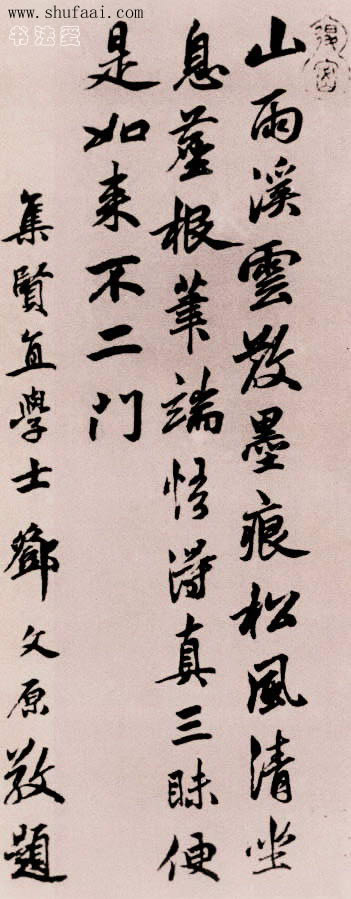 www.shufaai.com
书法爱
山雨溪雲散墨痕松風清坐
息塵根筆端悟得真三昧便
是如来不二門
集賢直學士鄧文原敬題